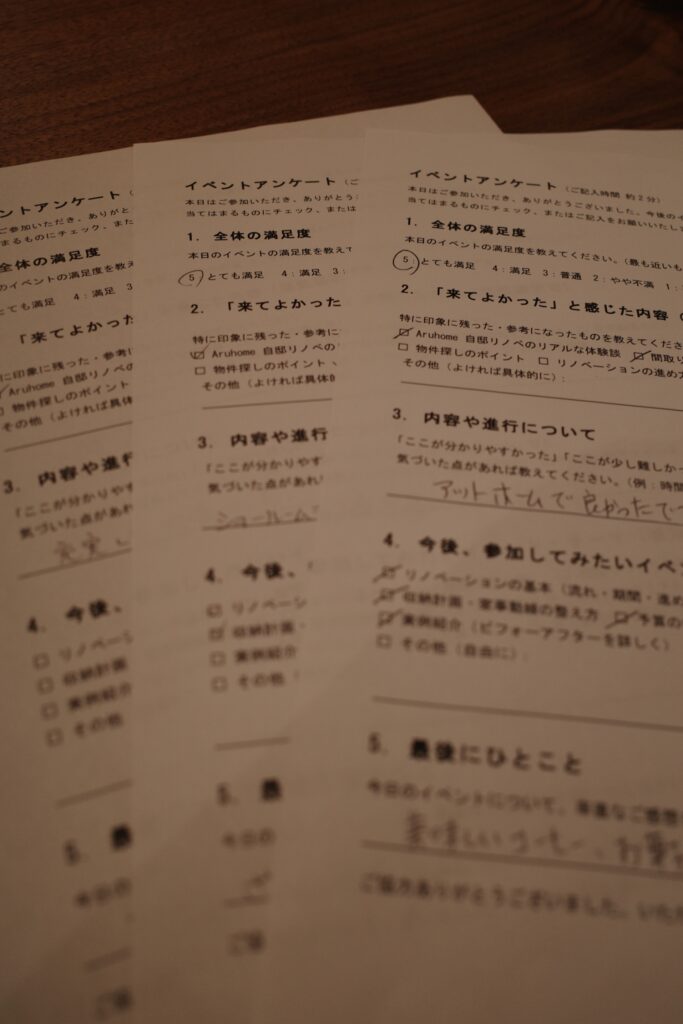 ントアンケート（
ご参加いただき、ありがと
まるものにチェック、また
全体の満足度
のイベントの満足度を教えて
とても満足 4：満足 3
「来てよかっ
に印象に残った・参考に
Aruhome 自邸リノベの
□ 物件探しのポイント
その他（よければ具体
3. 内容や進行
「ここが分かりやす
気づいた点があれ
4. 今後、
□ リノベーシ
□ 収納計画
□ 実例紹介
□ その他
5. 最
今日の
イベントアンケート（ご
本日はご参加いただき、ありがとう
当てはまるものにチェック、または
1. 全体の満足度
本日のイベントの満足度を教えて
5：とても満足 4：満足 3：
2. 「来てよかった
特に印象に残った・参考に
☑ Aruhome 自邸リノベの
□ 物件探しのポイント
その他（よければ具体的
3. 内容や進行
「ここが分かりやす
気づいた点があれ
ショールーム
4. 今後、
□ リノベーシ
□ 収納計画・
□ 実例紹介
□ その他
5. 最
今日の
ご協
イベントアンケート（ご記入時間 約2分）
本日はご参加いただき、ありがとうございました。今後のイ
当てはまるものにチェック、またはご記入をお願いいたし
1. 全体の満足度
本日のイベントの満足度を教えてください。（最も近いも
5：とても満足 4：満足 3：普通 2：やや不満 1：
2. 「来てよかった」と感じた内容（
特に印象に残った・参考になったものを教えてくださ
☑ Aruhome 自邸リノベのリアルな体験談 ☑ 間取り
□ 物件探しのポイント □ リノベーションの進め方
その他（よければ具体的に）：
3. 内容や進行について
「ここが分かりやすかった」「ここが少し難しかっ
気づいた点があれば教えてください。（例：時間
アットホームで良かったで
4. 今後、参加してみたいイベン
☑ リノベーションの基本（流れ・期間・進め
☑ 収納計画・家事動線の整え方 ☑ 予算の
☑ 実例紹介（ビフォーアフターを詳しく）
□ その他（自由に）：
5. 最後にひとこと
今日のイベントについて、率直なご感想
美味しいコーヒー、お菓
ご協力ありがとうございました。いただ